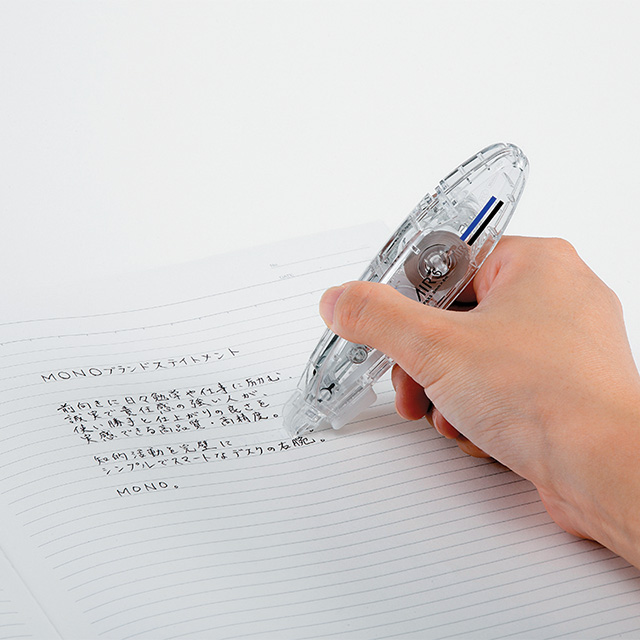 MONOブランドステイトメント
前向きに日々勉学や仕事に励む
誠実で責任感の強い人が、
使い勝手と仕上がりの良さを
実感できる高品質・高精度。
知的活動を完璧に
シンプルでスマートなデスクの右腕。
MONO。
AIR